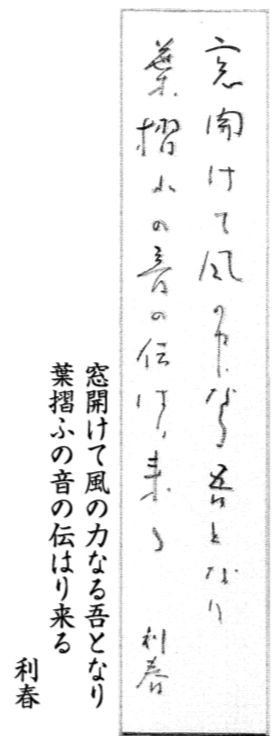 窓開けて風の中なる吾となり
葉摺ふの音の伝はり来る
利春
窓開けて風の力なる吾となり
葉摺ふの音の伝はり来る
利春